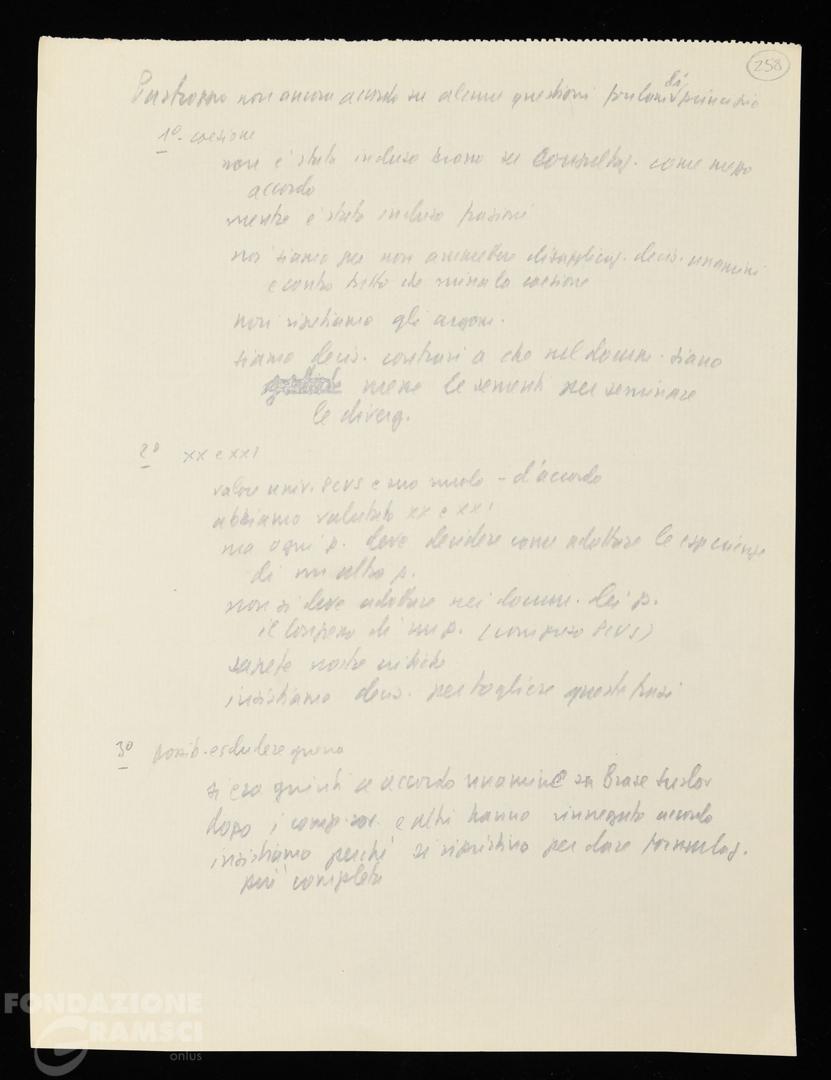 258
Purtroppo non ancora accordo su alcune questioni di principio
1º - coesione
non è stato incluso brano su consultaz. come mezzo
accordo
mentre è stato incluso frazioni
noi siamo per non ammettere disapplicaz. decis. unanimi
e contro tutto che mina la coesione
non ripetiamo gli argom.
siamo decis. contrari a che nel docum. siano
messe le sementi per seminare
le diverg.
2º xx e xxI
valore univ. PCUS e suo ruolo - d'accordo
abbiamo valutato xx e xxI
ma ogni p. deve decidere come adottare le esperienze
di un altro p.
non si deve adottare nei docum. dei p.
il congresso di un p. (compreso PCUS)
sapete nostre critiche
insistiamo decis. per togliere queste frasi
3º possib. escludere guerra
si era giunti a accordo unanime su frase
dopo i comp. sov. e altri hanno rinnegato accordo
insistiamo perché si ripristina per dare formulaz.
più completa
FONDAZIONE
GRAMSCI
onlus